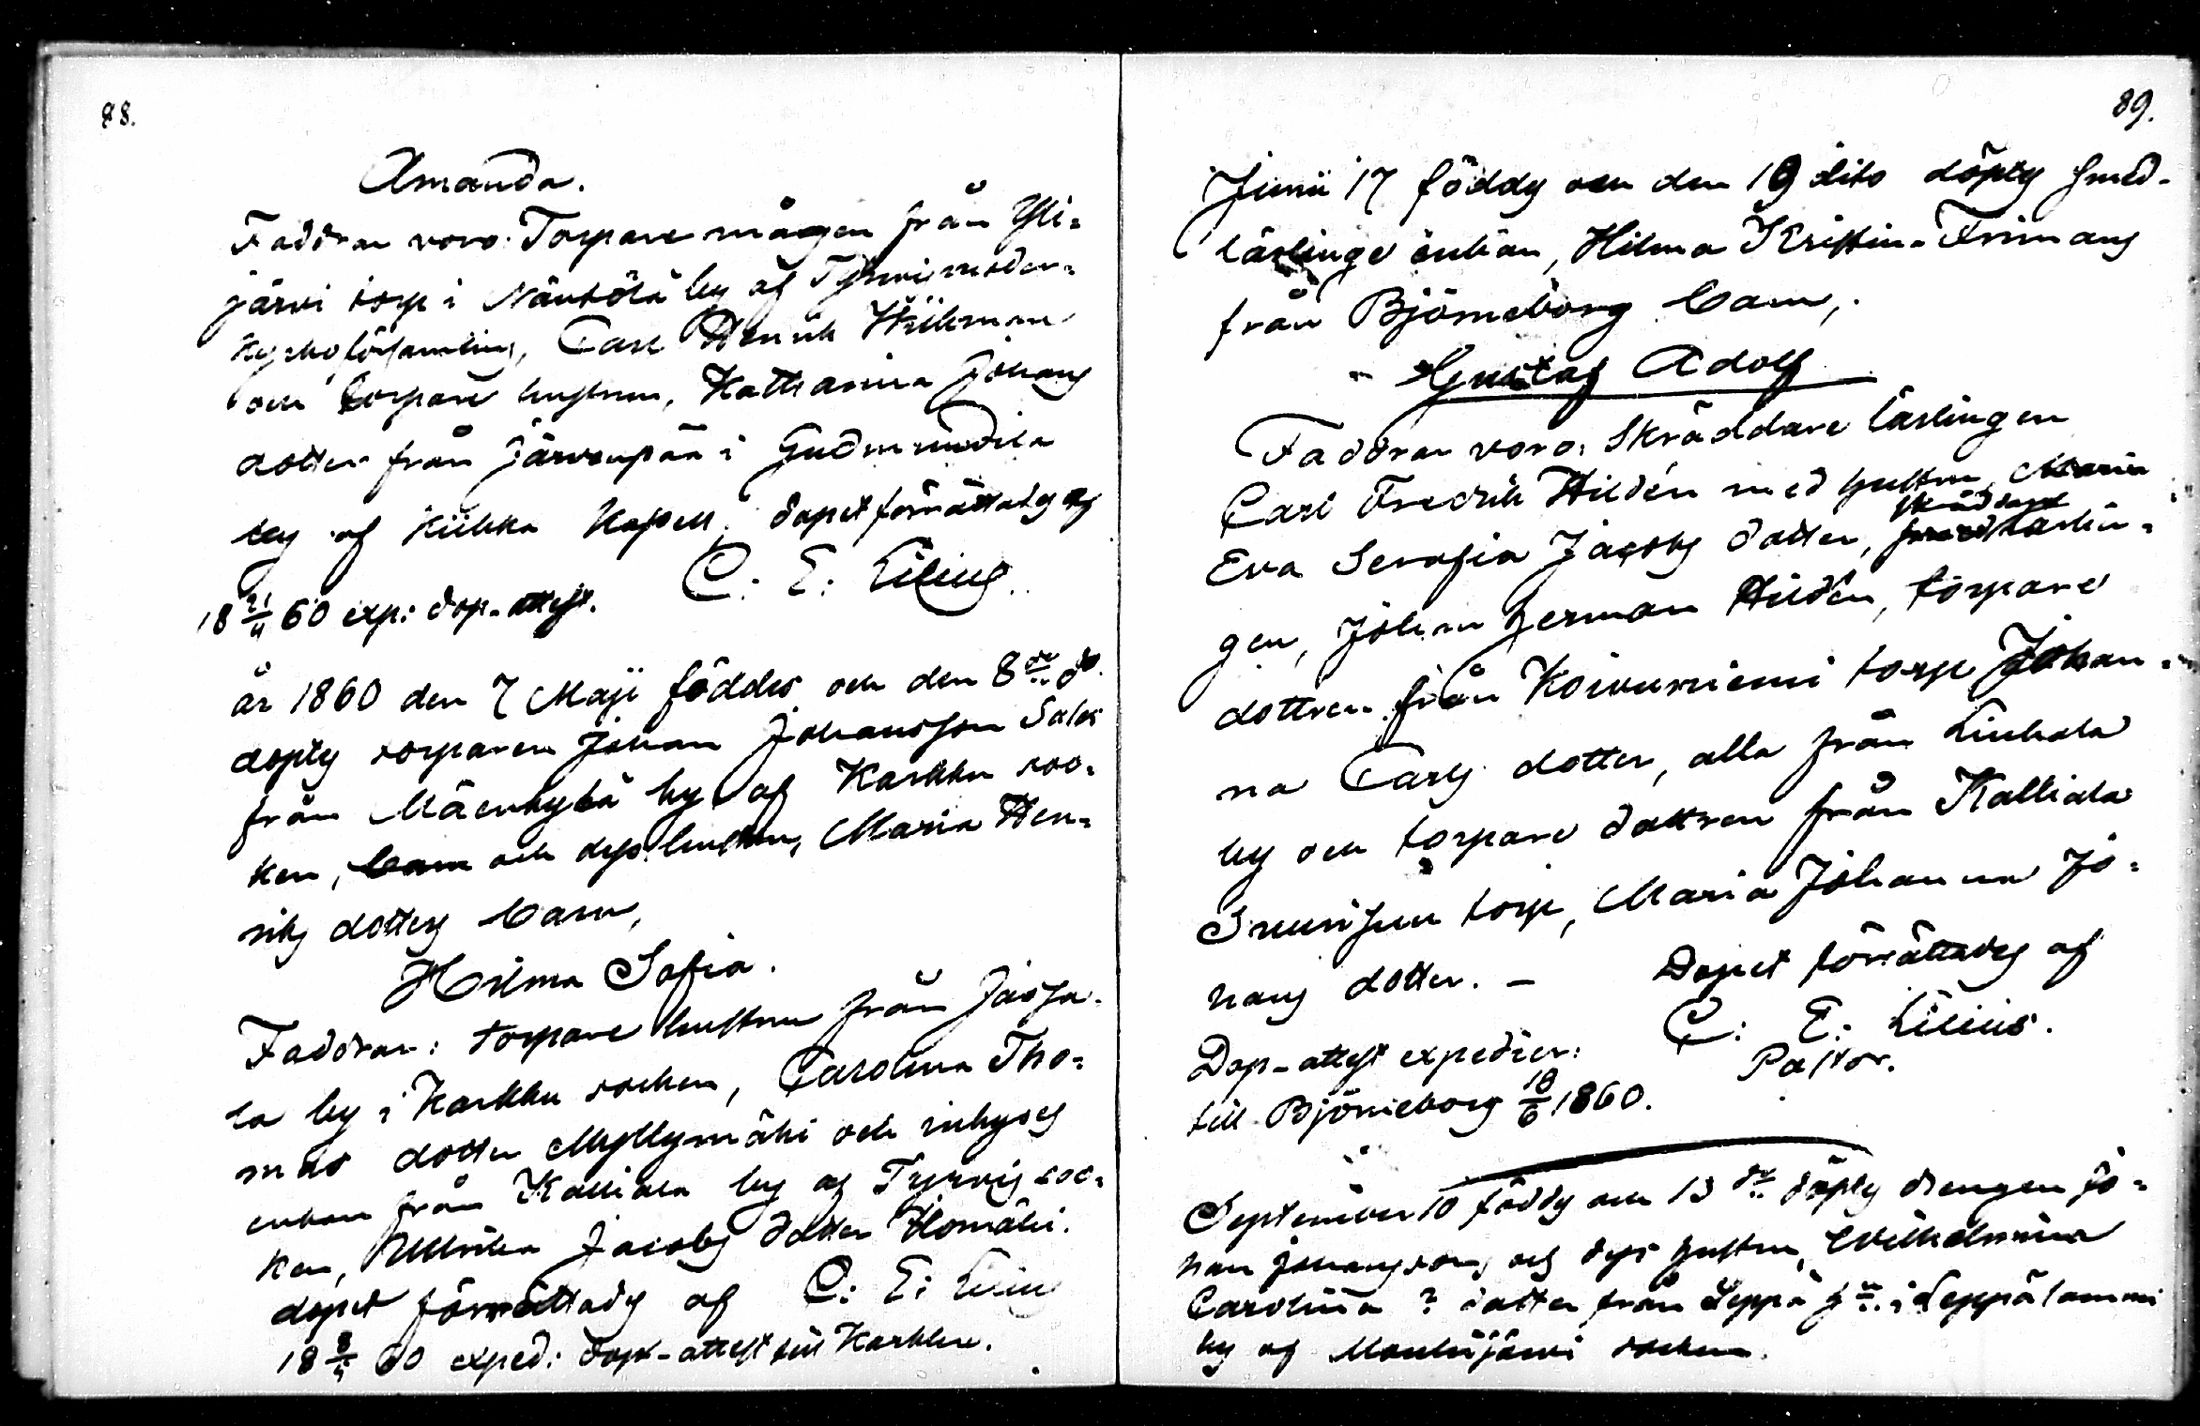 88.
Amanda.
Faddrar voro: Torpare mågen från Yli=
järvi torp i Näntölä by af Tyrvis moder=
kyrko församling, Carl Henrik Wiikman
och torpare hustrun, Katharina Johans
dotter från Järvenpää i Gudmundila
by af Kiikka Kapell. dopet förrättades af
C: E: Lilius.
18 21/4 60 exp: dop-attest.
år 1860 den 7 Maji föddes och den 8de do
döptes torparen Johan Johansson Salos
från Mäenkylä by af Karkku soc=
ken, barn och dess hustru, Maria Hen=
riks dotters barn,
Hilma Sofia.
Faddrar: torpare hustrun från Jaosa=
la by i Karkku socken, Carolina Tho=
mas dotter Myllymäki och inhyses
enkan från Kalliala by af Tyrvis soc=
ken, Ulrika Jacobs dotter Homäki.
dopet förrättades af C: E: Lilius
18 8/5 60 exped: dop-attest till Karkku.
89.
Junii 17 föddes och den 19 dito döptes smed-
lärlinge enkan, Hilma Kristina Frimans
från Björneborg barn,
Gustaf Adolf
Faddrar voro: Skräddare lärlingen
Carl Fredrik Hildén med hustru, Maria
Eva Serafia Jacobs dotter, skräddare smed lärlin=
gen, Johan Herman Hildén, torpare
dottren från Koivuniemi torp Johan=
na Carls dotter, alla från Liuhala
by och torpare dottren från Kalliala
torp, Maria Johanna Jo=
hans dotter. – Dopet förrättades af
C: E: Lilius.
Pastor.
Dop-attest expedier:
till Björneborg 18/6 1860.
September 10 föddes och 13de döptes drengen Jo=
han Johansons och dess hustru, Wilhelmina
Carolina ? dotter från Leppä i Leppälammi
by af Mouhijärvi socken.